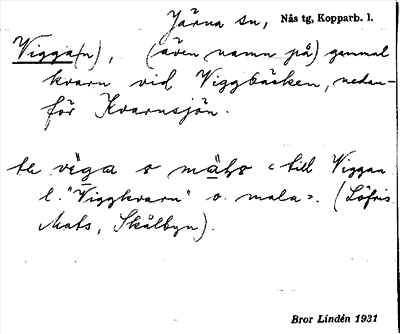 Järna sn, Nås tg, Kopparb. l.
Vigga(n), (även namn på) gammal
kvarn vid Viggbäcken, nedan-
för Kvarnsjön.
te viga o mäha "till Viggan
l. "Viggkvarn" o. mala". (Löfris
Mats, Skålbyn).
Bror Lindén 1931